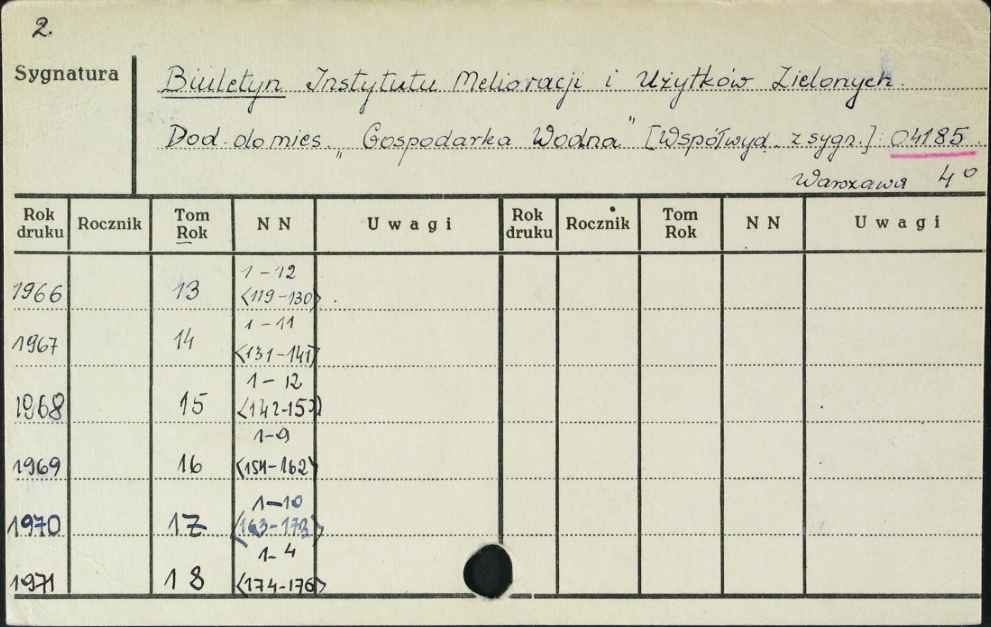 2.
Sygnatura
Biuletyn Instytutu Melioracji i Użytków Zielonych.
Dod. do mies. „Gospodarka Wodna" [Współwyd. z sygn.]: 04185.
Warszawa 4°
Rok druku Rocznik Tom Rok NN Uwagi Rok druku Rocznik Tom Rok NN Uwagi
1966 13 1-12 <119-130>
1967 14 1-11 <131-141>
1968 15 1-12 <142-153>
1969 16 1-9 <154-162>
1970 17 1-10 <163-173>
1971 18 1-4 <174-176>